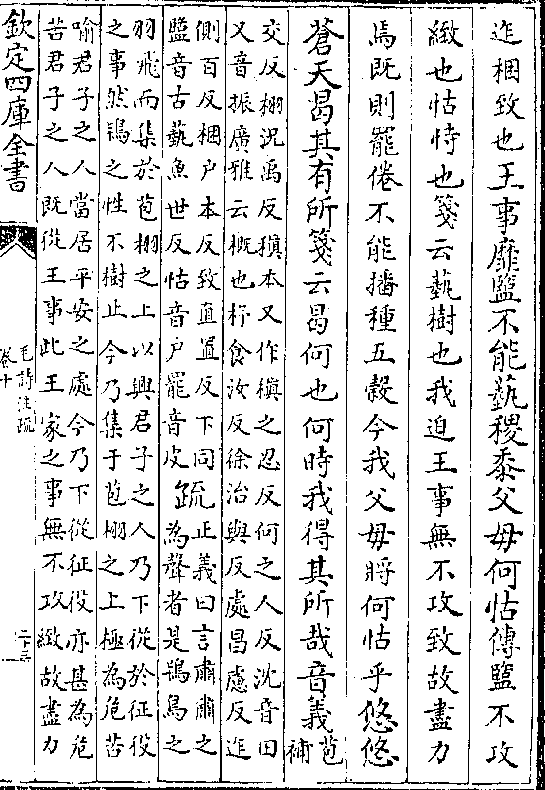 迮梱致也王事靡盬不能蓺稷黍父母何怙傳盬不攻
緻也怙恃也箋云蓺樹也我迫王事無不攻致故盡力
焉既則罷倦不能播種五穀今我父母將何怙乎悠悠
蒼天曷其有所箋云曷何也何時我得其所哉音義苞補
交反栩況禹反稹本又作槙之忍反何之人反沈音田
又音振廣雅云概也杼食汝反徐治與反處昌慮反迮
側百反梱户本反致直置反下同
盬音古蓺魚世反怙音户罷音皮
疏正義曰言肅肅之
為聲者是鴇鳥之
羽飛而集於苞栩之上以興君子之人乃下從於征役
之事然鴇之性不樹止今乃集于苞栩之上極為危苦
喻君子之人當居平安之處今乃下從征役亦甚為危
苦君子之人既從王事此王家之事無不攻緻故盡力
欽定四庫全書
毛詩注疏
卷十
二十三